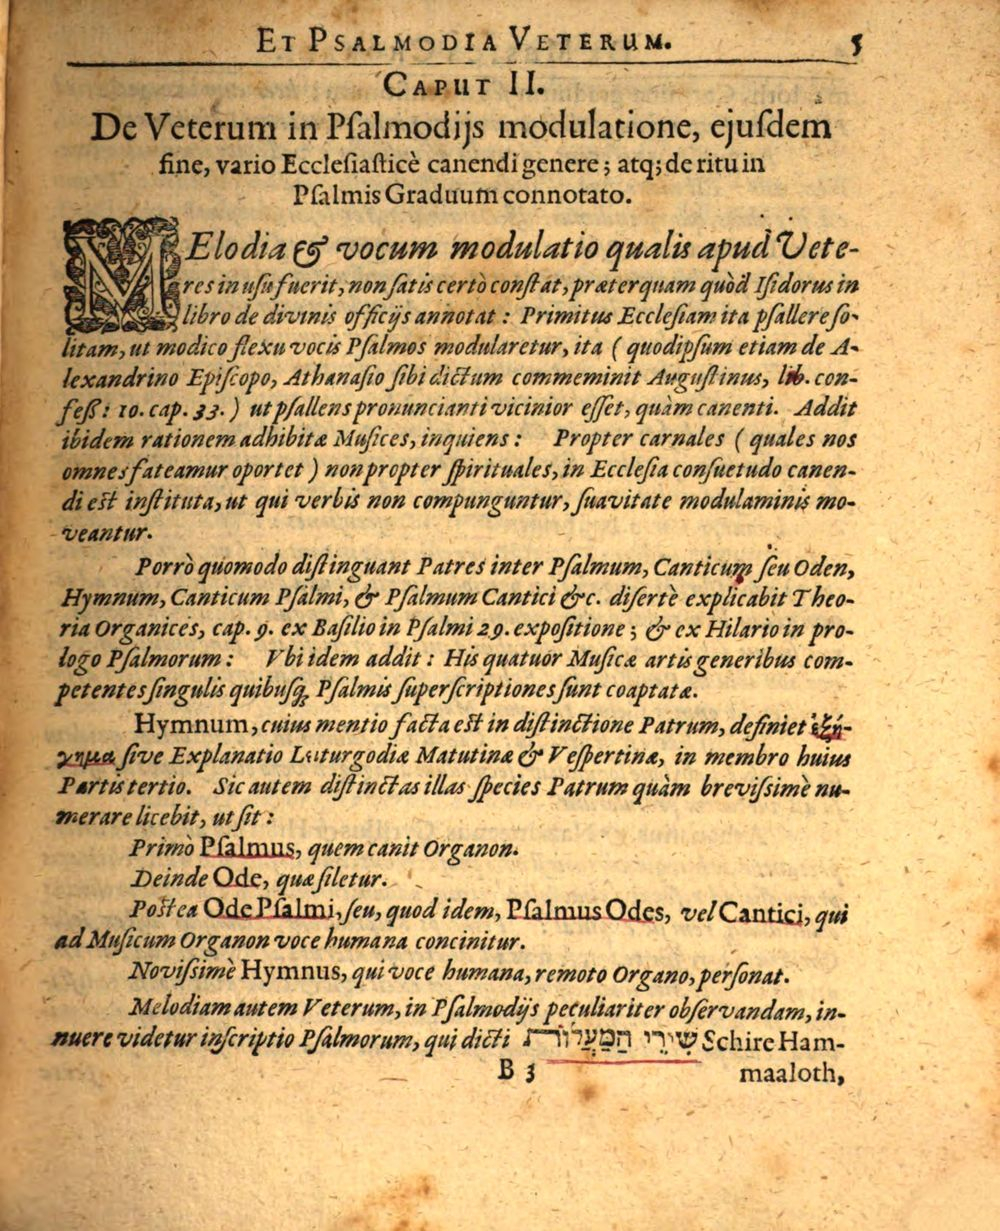 ET PSALMODIA VETERUM. 5
CAPUT II.
De Veterum in Pſalmodijs modulatione, ejuſdem
fine, vario Eccleſiaſticè canendi genere; atq; de ritu in
Pſalmis Graduum connotato.
MElodia & vocum modulatio qualis apud Vete-
res in uſu fuerit, non ſatis certò conſtat, præterquam quòd Iſidorus in
libro de divinis officijs annotat: Primitus Eccleſiam ita pſallere ſo-
litam, ut modico flexu vocis Pſalmos modularetur, ita ( quod ipſum etiam de A-
lexandrino Epiſcopo, Athanaſio ſibi dictum commeminit Auguſtinus, lib. con-
feß: 10. cap. 33. ) ut pſallens pronuncianti vicinior eſſet, quàm canenti. Addit
ibidem rationem adhibitæ Muſices, inquiens: Propter carnales ( quales nos
omnes fateamur oportet ) non propter ſpirituales, in Eccleſia conſuetudo canen-
di eſt inſtituta, ut qui verbis non compunguntur, ſuavitate modulaminis mo-
veantur.
Porrò quomodo diſtinguant Patres inter Pſalmum, Canticum ſeu Oden,
Hymnum, Canticum Pſalmi, & Pſalmum Cantici &c. diſertè explicabit Theo-
ria Organices, cap. 9. ex Baſilio in Pſalmi 29. expoſitione; & ex Hilario in pro-
logo Pſalmorum: Vbi idem addit: His quatuor Muſicæ artis generibus com-
petentes ſingulis quibuſq; Pſalmis ſuperſcriptiones ſunt coaptatæ.
Hymnum, cuius mentio facta eſt in diſtinctione Patrum, definiet ἐξή-
γημα ſive Explanatio Liturgodiæ Matutinæ & Veſpertinæ, in membro huius
Partis tertio. Sic autem diſtinctas illas ſpecies Patrum quàm breviſſimè nu-
merare licebit, ut ſit:
Primò Pſalmus, quem canit Organon.
Deinde Ode, quæ ſiletur.
Poſtea Ode Pſalmi, ſeu, quod idem, Pſalmus Odes, vel Cantici, qui
ad Muſicum Organon voce humana concinitur.
Noviſſimè Hymnus, qui voce humana, remoto Organo, perſonat.
Melodiam autem Veterum, in Pſalmodijs peculiariter obſervandam, in-
nuere videtur inſcriptio Pſalmorum, qui dicti שִׁירֵי הַמַּעֲלוֹת Schire Ham-
B 3 maaloth,